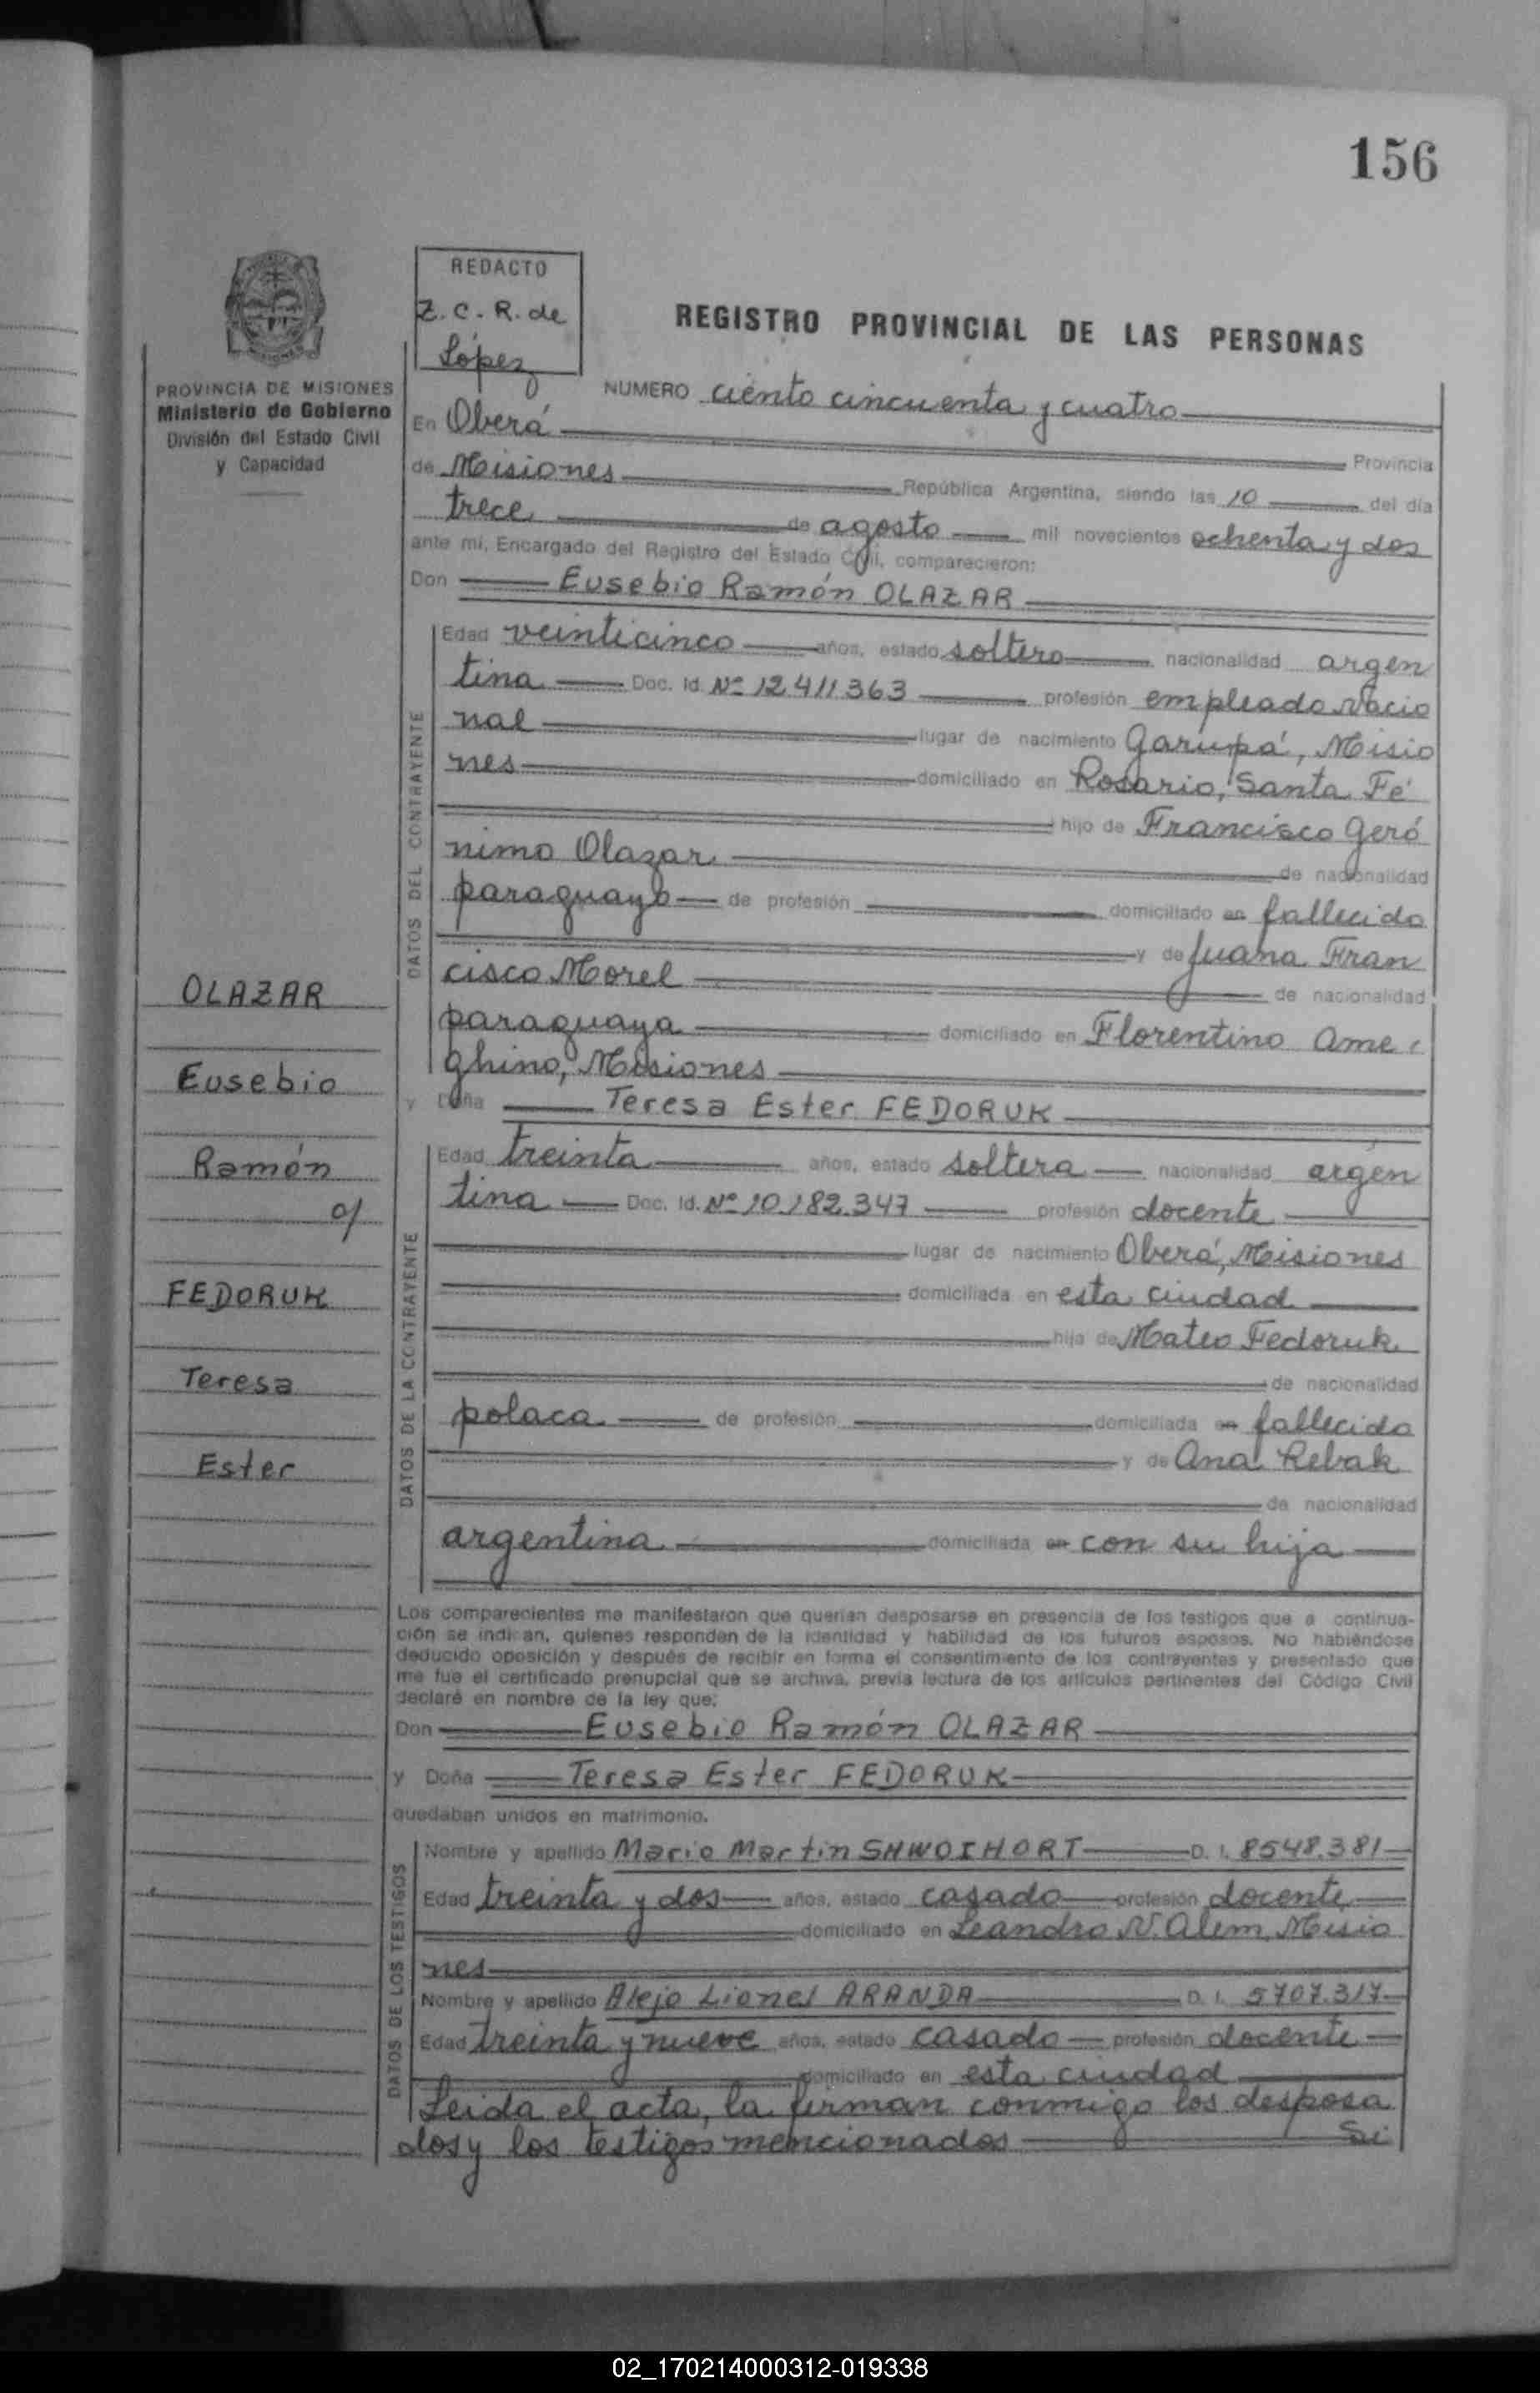 156
REDACTO
Z. C. R. de
López
REGISTRO PROVINCIAL DE LAS PERSONAS
PROVINCIA DE MISIONES
Ministerio de Gobierno
División del Estado Civil
y Capacidad
NUMERO ciento cincuenta y cuatro
En Oberá Provincia
de Misiones República Argentina, siendo las 10 del día
trece de agosto mil novecientos ochenta y dos
ante mí, Encargado del Registro del Estado Civil, comparecieron:
Don Eusebio Ramón OLAZAR
DATOS DEL CONTRAYENTE
Edad veinticinco años, estado soltero nacionalidad argen
tina Doc. Id. Nº 12.411.363 profesión empleado Nacio
nal lugar de nacimiento Garupá, Misio
nes domiciliado en Rosario, Santa Fé
hijo de Francisco Geró
nimo Olazar de nacionalidad
paraguayo de profesión domiciliado en fallecido
y de Juana Fran
cisco Morel de nacionalidad
paraguaya domiciliado en Florentino Ame
ghino, Misiones
y Doña Teresa Ester FEDORUK
DATOS DE LA CONTRAYENTE
Edad treinta años, estado soltera nacionalidad argen
tina Doc. Id. Nº 10.182.347 profesión docente
lugar de nacimiento Oberá, Misiones
domiciliada en esta ciudad
hija de Mateo Fedoruk
de nacionalidad
polaca de profesión domiciliada en fallecido
y de Ana Rebak
de nacionalidad
argentina domiciliada en con su hija
OLAZAR
Eusebio
Ramón
c/
FEDORUK
Teresa
Ester
Los comparecientes me manifestaron que querían desposarse en presencia de los testigos que a continua-
ción se indican, quienes responden de la identidad y habilidad de los futuros esposos. No habiéndose
deducido oposición y después de recibir en forma el consentimiento de los contrayentes y presentado que
me fue el certificado prenupcial que se archiva, previa lectura de los artículos pertinentes del Código Civil
declaré en nombre de la ley que:
Don Eusebio Ramón OLAZAR
y Doña Teresa Ester FEDORUK
quedaban unidos en matrimonio.
DATOS DE LOS TESTIGOS
Nombre y apellido Mario Martin SHWOIHORT D. I. 8548.381
Edad treinta y dos años, estado casado profesión docente
domiciliado en Leandro N. Alem, Misio
nes
Nombre y apellido Alejo Lionel ARANDA D. I. 5707.317
Edad treinta y nueve años, estado casado profesión docente
domiciliado en esta ciudad
Leida el acta, la firman conmigo los desposa
dos y los testigos mencionados Si
02_170214000312-019338